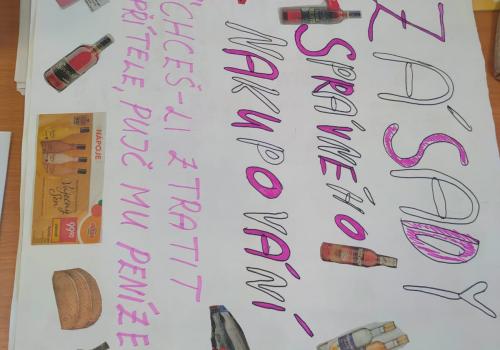 ZÁSADY
SPRÁVNÉHO
NAKUPOVÁNÍ
"CHCEŠ-LI ZTRATIT
PŘÍTELE, PUJČ MU PENÍZE
NÁPOJE